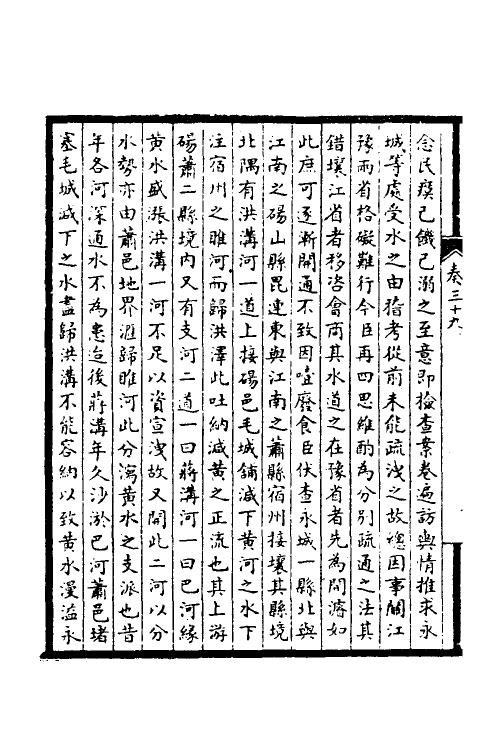 奏三十九
念民瘼己饑己溺之至意即檢查案卷遍訪輿情推求永
城等處受水之由稽考從前未能疏洩之故總因事關江
豫兩省格礙難行今臣再四思維酌為分別疏通之法其
錯壤江省者移咨會商其水道之在豫省者先為開濬如
此庶可逐漸開通不致因噎廢食臣伏查永城一縣北與
江南之碭山縣毘連東與江南之蕭縣宿州接壤其縣境
北隅有洪溝河一道上接碭邑毛城鋪減下黃河之水下
注宿州之睢河而歸洪澤此吐納減黃之正流也其上游
碭蕭二縣境內又有支河二道一曰蔣溝河一曰巴河緣
黃水盛漲洪溝一河不足以資宣洩故又開此二河以分
水勢亦由蕭邑地界滙歸睢河此分瀉黃水之支派也昔
年各河深通水不為患迨後蔣溝年久沙淤巴河蕭邑堵
塞毛城減下之水盡歸洪溝不能容納以致黃水漫溢永